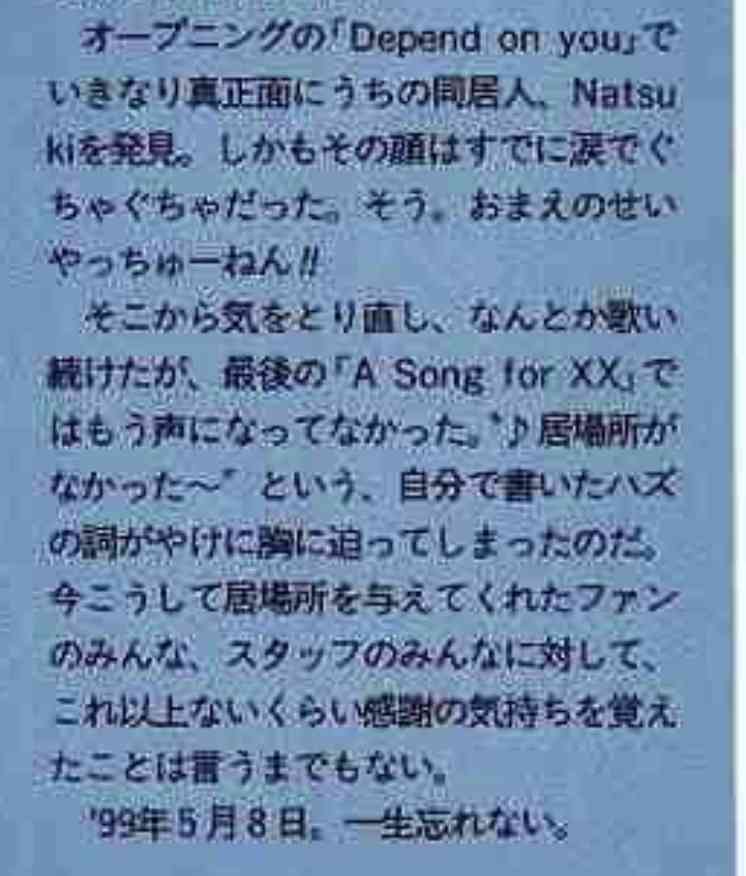 オープニングの「Depend on you」で
いきなり真正面にうちの同居人、Natsu
kiを発見。しかもその顔はすでに涙でぐ
ちゃぐちゃだった。そう。おまえのせい
やっちゅーねん!!
そこから気をとり直し、なんとか歌い
続けたが、最後の「A Song for XX」で
はもう声になってなかった。〝♪居場所が
なかった〜〟という、自分で書いたハズ
の詞がやけに胸に迫ってしまったのだ。
今こうして居場所を与えてくれたファン
のみんな、スタッフのみんなに対して、
これ以上ないくらい感謝の気持ちを覚え
たことは言うまでもない。
'99年5月8日。一生忘れない。